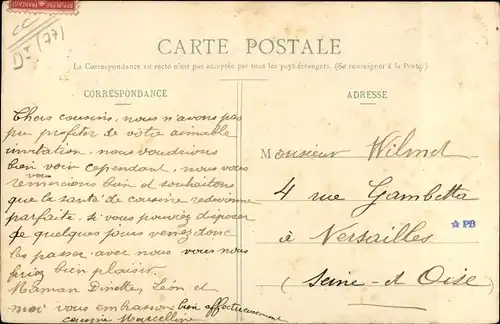 CC
Dt (77)
CARTE POSTALE
La Correspondance au recto n'est pas acceptée par tous les pays étrangers. (Se renseigner à la Poste)
CORRESPONDANCE
Chers cousins, nous n'avons pas
pu profiter de vôtre aimable
invitation, nous voudrions
bien voir cependant, nous vous
vous
remercions bien et souhaitons
que la santé de cousine redevienne
parfaite, si vous pouviez disposer
de quelques jours venez donc
les passer avec nous vous nous
feriez bien plaisir.
Maman Dinette, Léon et
moi vous embrassons bien affectueusement
cousine Marcelline
ADRESSE
Monsieur Wilmet
4 rue Gambetta
à Versailles
(Seine-et Oise)
PB